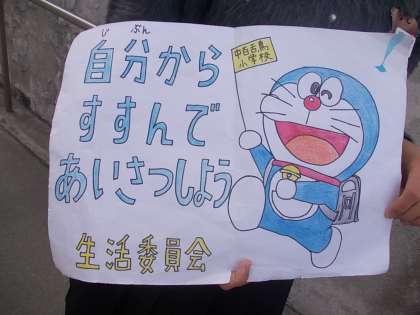 じぶん
自分から
すすんで
あいさつしよう
生活委員会
中百舌鳥
小学校